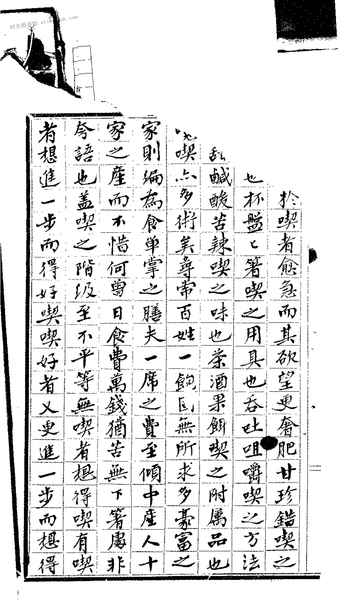 於喫者愈急而其欲望更奢肥甘珍錯喫之
也杯盤匕箸喫之用具也吞吐咀嚼喫之方法
鹹酸苦辣喫之味也茶酒果餅喫之附属品也
喫亦多術矣尋常百姓一飽固無所求多豪富之
家則編為食单掌之膳夫一席之費至傾中産人十
家之産而不惜何曽日食費萬錢猶苦無下箸處非
夸語也盖喫之階级至不平等無喫者想得喫有喫
者想進一步而得好喫喫好者又更進一步而想得